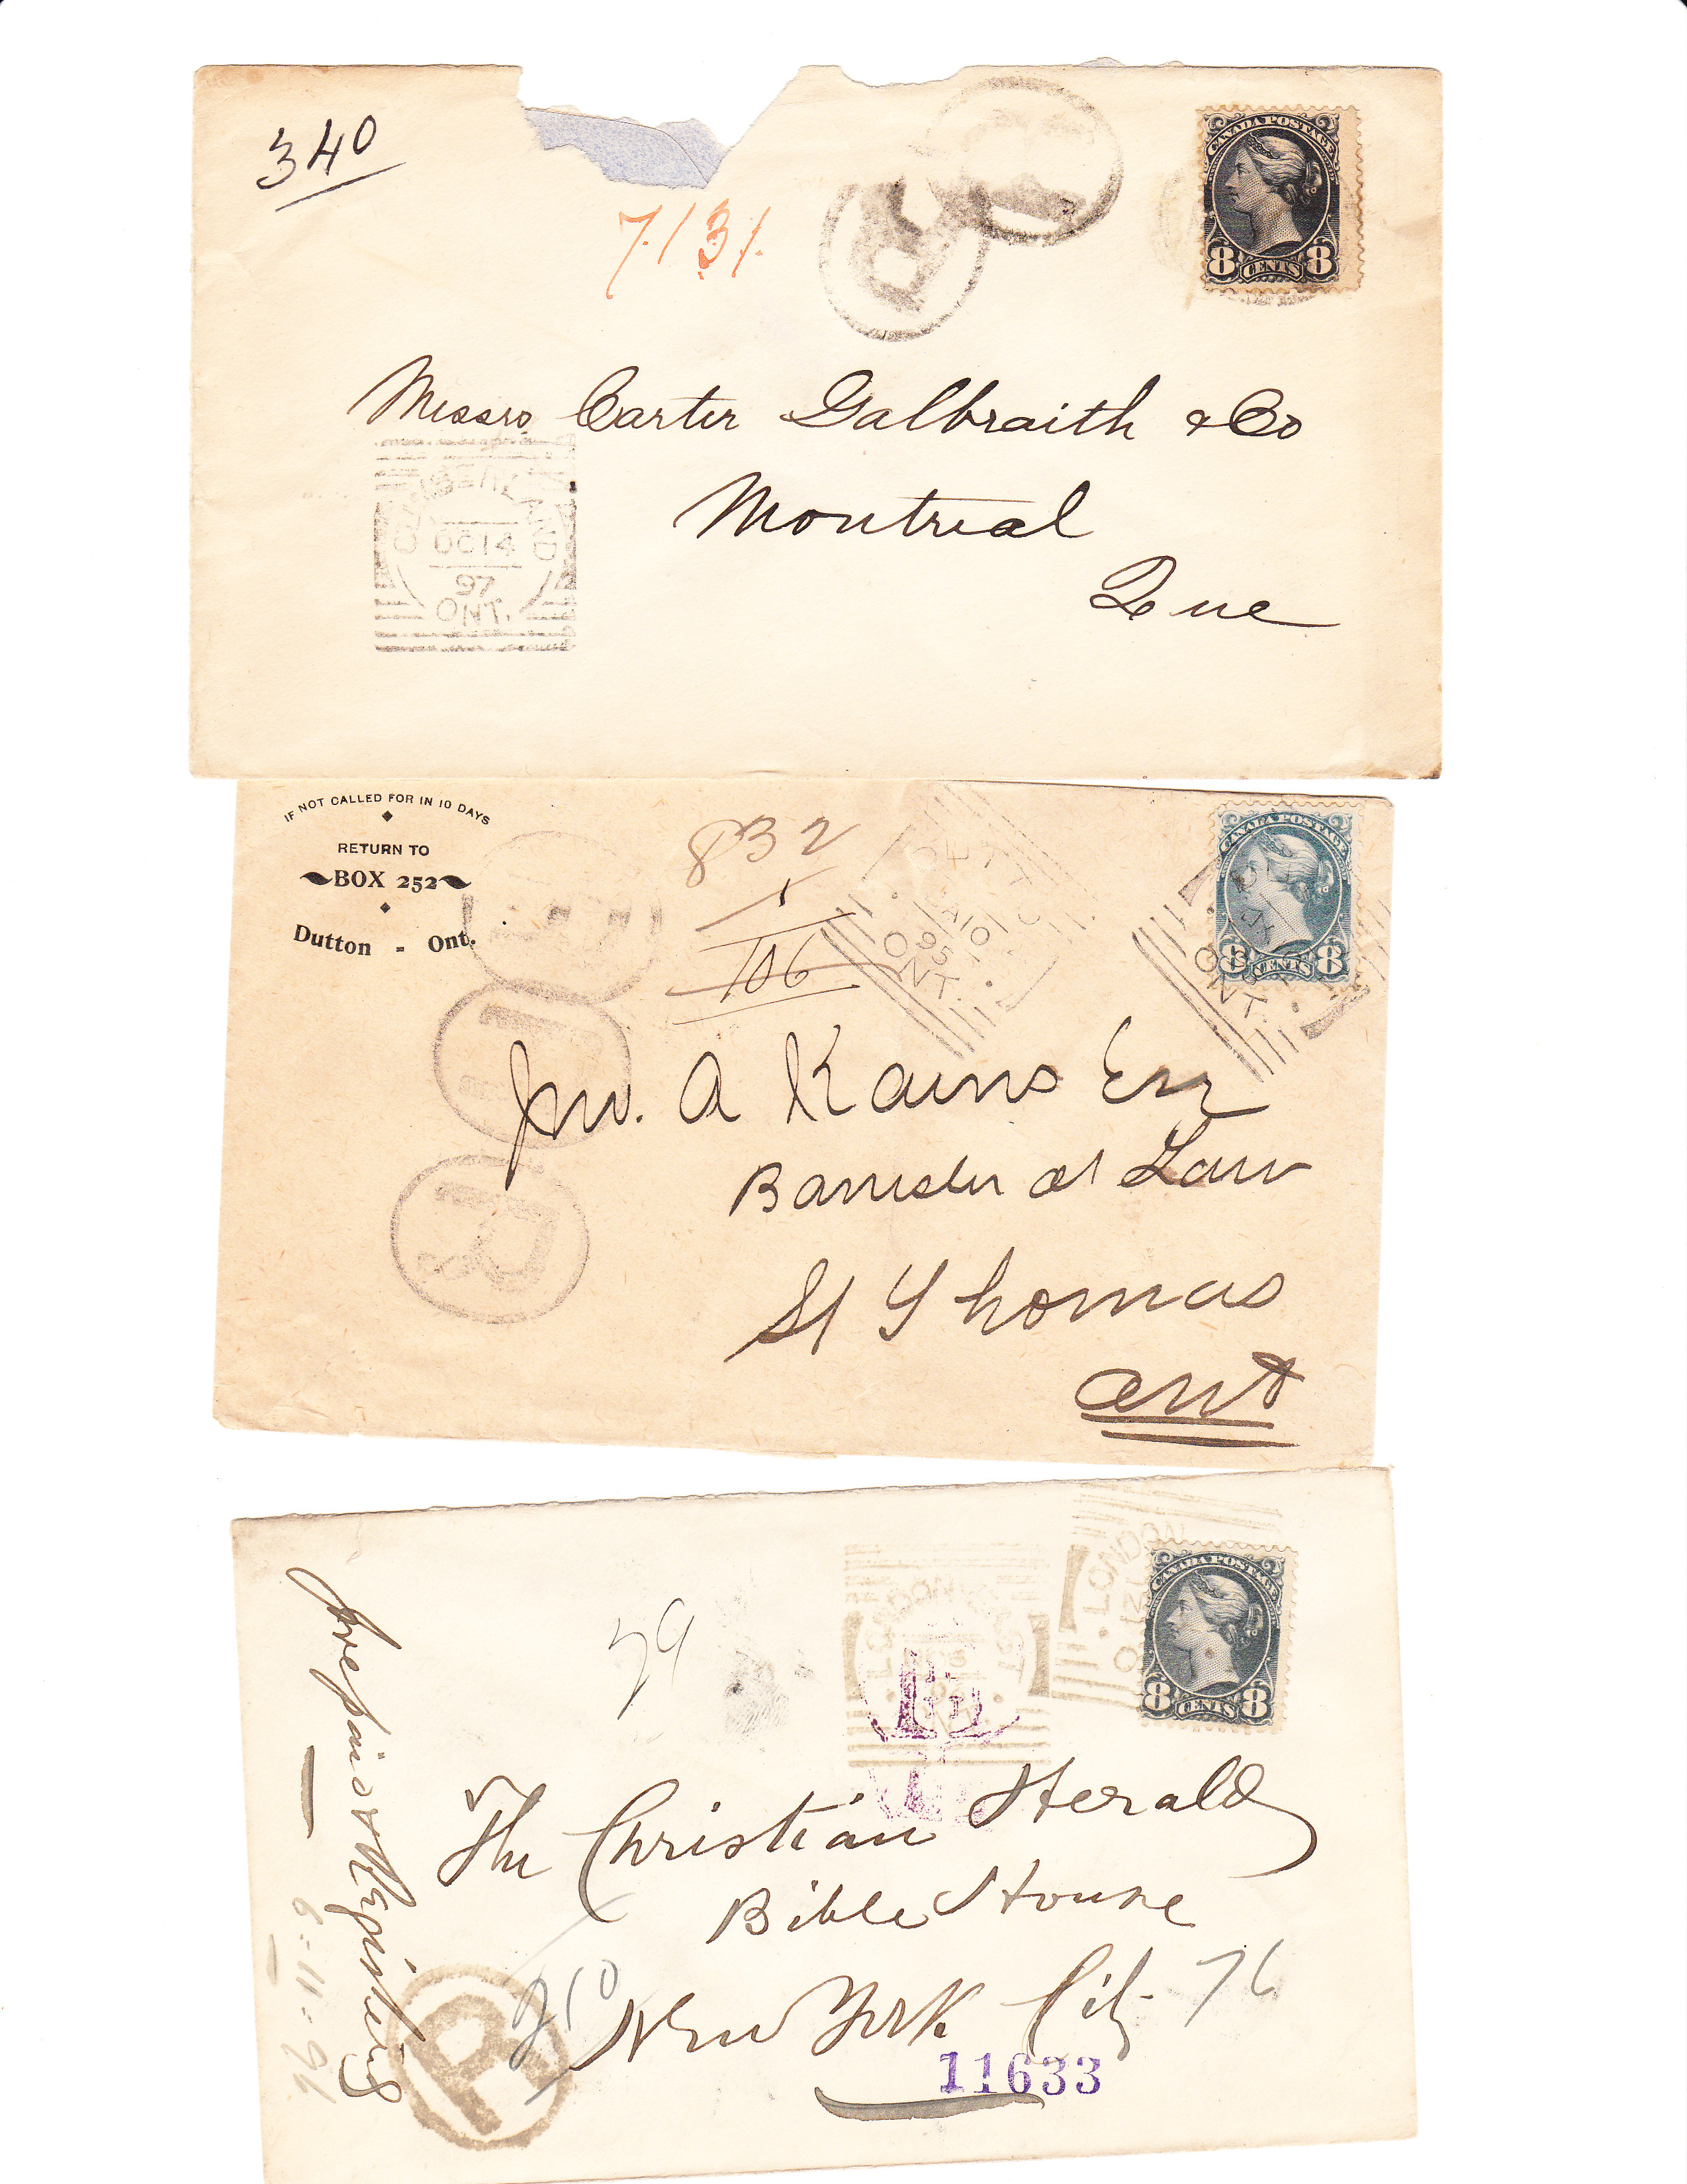 340
7131.
CANADA POSTAGE
8 CENTS 8
Messrs Carter Galbraith & Co
Montreal
Que
CUMBERLAND
OC 14
97
ONT.
R
IF NOT CALLED FOR IN 10 DAYS
RETURN TO
BOX 252
Dutton - Ont.
832
1
106
DUTTON
JA 10
95
ONT.
CANADA POSTAGE
8 CENTS 8
ONT.
R
Jno. A Kains Esq
Barrister at Law
St Thomas
Ont
79
LONDON EAST
LONDON
CANADA POSTAGE
8 CENTS 8
The Christian Herald
Bible House
New York City 76
11633
R